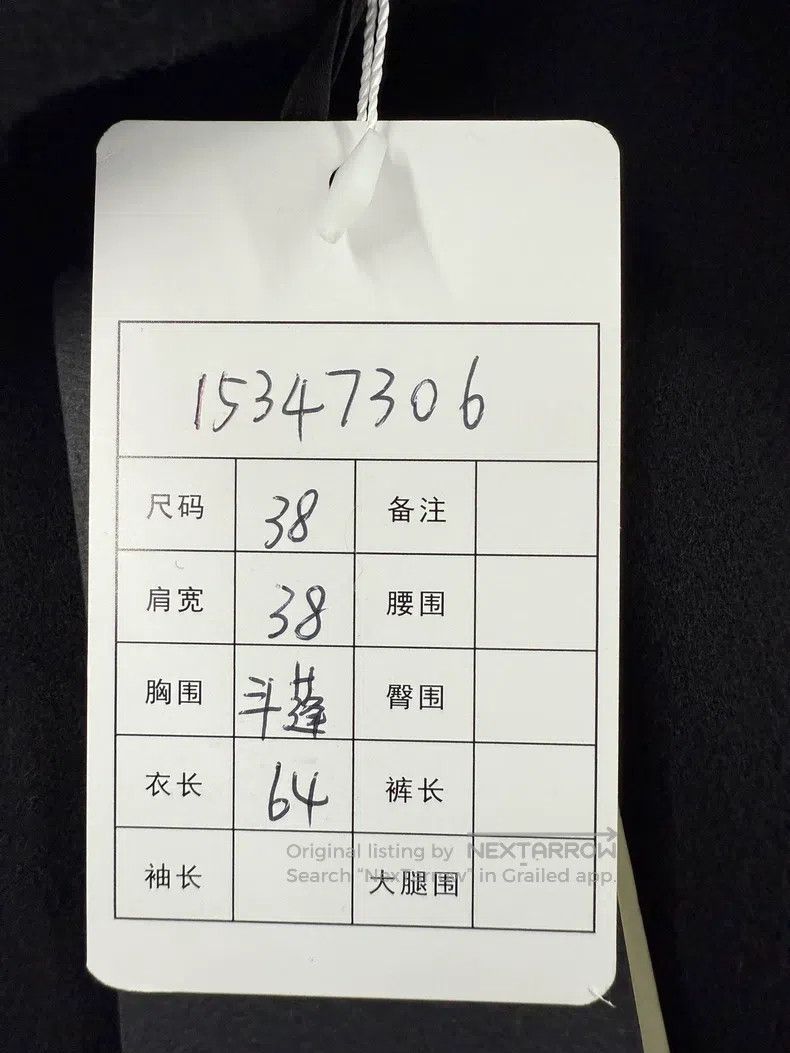 15347306
尺码 38 备注
肩宽 38 腰围
胸围 斗蓬 臀围
衣长 64 裤长
袖长 大腿围
Original listing by NEXTARROW
Search “NexTarrow” in Grailed app.